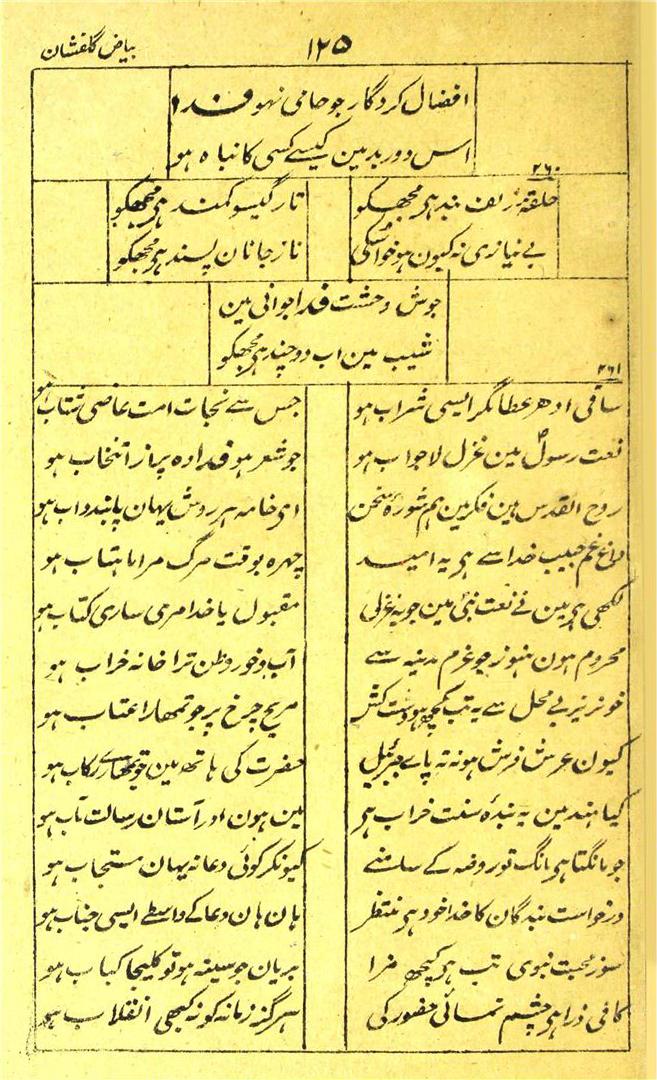 بیاض گلفشان
۱۲۵
افضال کردگار جو حامی نہو فدا
اس دور بد مین کیسے کسی کا نباہ ہو
۲۶۰
حلقۂ زلف بند ہی مجھکو تار گیسو کمند ہی مجھکو
بے نیازی نہ کیون ہو خواشکی ناز جانان پسند ہی مجھکو
جوش وحشت فدا جوانی مین
شیب مین اب دو چند ہی مجھکو
۲۶۱
ساقی ادھر عطا مگر ایسی شراب ہو جس سے نجات امت عاصی شتاب ہو
نعت رسولؐ مین غزل لاجواب ہو جو شعر ہو فدا وہ پر از انتخاب ہو
روح القدس ہین فکر مین ہم شورۂ سخن ای خامہ ہر روش یہان پابند داب ہو
داغ غم حبیب خدا سے ہی یہ امید چہرہ بوقت مرگ مرا ماہتاب ہو
لکھی ہی مین نے نعت نبی مین جو یہ غزل مقبول یا خدا مری ساری کتاب ہو
محروم ہون ہنوز جو عزم مدینہ سے آب و خور وطن ترا خانہ خراب ہو
خونریز بے محل سے یہ تب کچھ ہو دست کش مریخ چرخ پر جو تمھارا عتاب ہو
کیون عرش فرش ہو نہ تہ پاے جبرئیل حضرت کی ہاتھ مین جو تمھارے رکاب ہو
کیا ہند مین یہ بندۂ سنت خراب ہی مین ہون اور آستان رسالت مآب ہو
جو مانگتا ہی مانگ تو روضہ کے سامنے کیونکر کوئی دعا نہ یہان مستجاب ہو
درخواست بندگان کا خدا خود ہی منتظر ہان ہان دعا کے واسطے ایسی جناب ہو
سوز محبت نبوی تب ہی کچھ مزا بریان جو سینہ ہو تو کلیجا کباب ہو
کافی ذرا ہی چشم نمائی حضور کی ہرگز زمانہ کو نہ کبھی انقلاب ہو